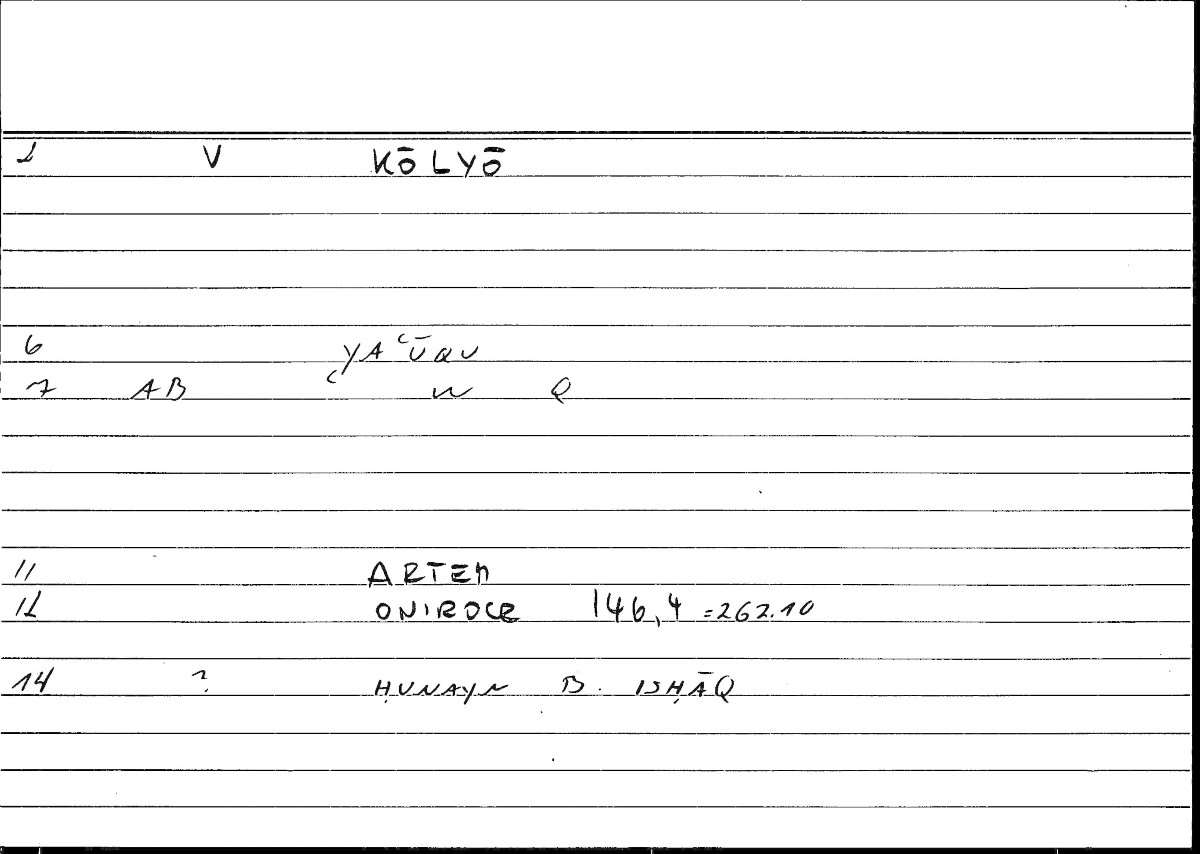 1 V KŌLYŌ
6 YAʿŪQU
7 AB ʿ W Q
11 ARTEM
12 ONIROCR 146,4 =262.10
14 ? ḤUNAYN B. ISḤĀQ